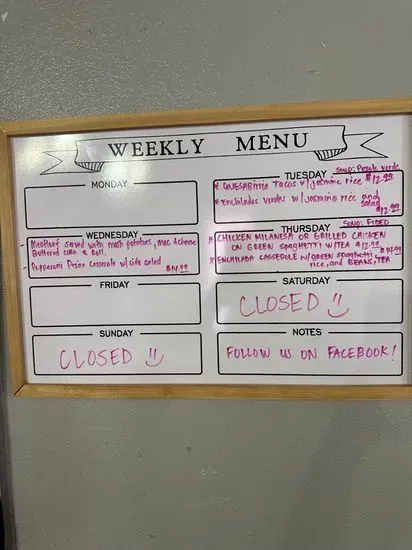 WEEKLY MENU
MONDAY
TUESDAY
SOUP: Pozole verde
* QUESABIRRIA TACOS w/jasmine rice $12.99
* Enchiladas verdes w/jasmine rice and
salad
$12.99
WEDNESDAY
- Meatloaf served with mash potatoes, mac & cheese
Buttered corn & roll.
- Pepperoni Pizza Casserole w/side salad
$14.99
THURSDAY
SOUP: FIDEO
* CHICKEN MILANESA OR GRILLED CHICKEN
ON GREEN SPAGHETTI W/TEA $12.99
* ENCHILADA CASSEROLE W/GREEN SPAGHETTI $14.99
rice, and BEANS, TEA
FRIDAY
SATURDAY
CLOSED
SUNDAY
CLOSED
NOTES
FOLLOW US ON FACEBOOK!